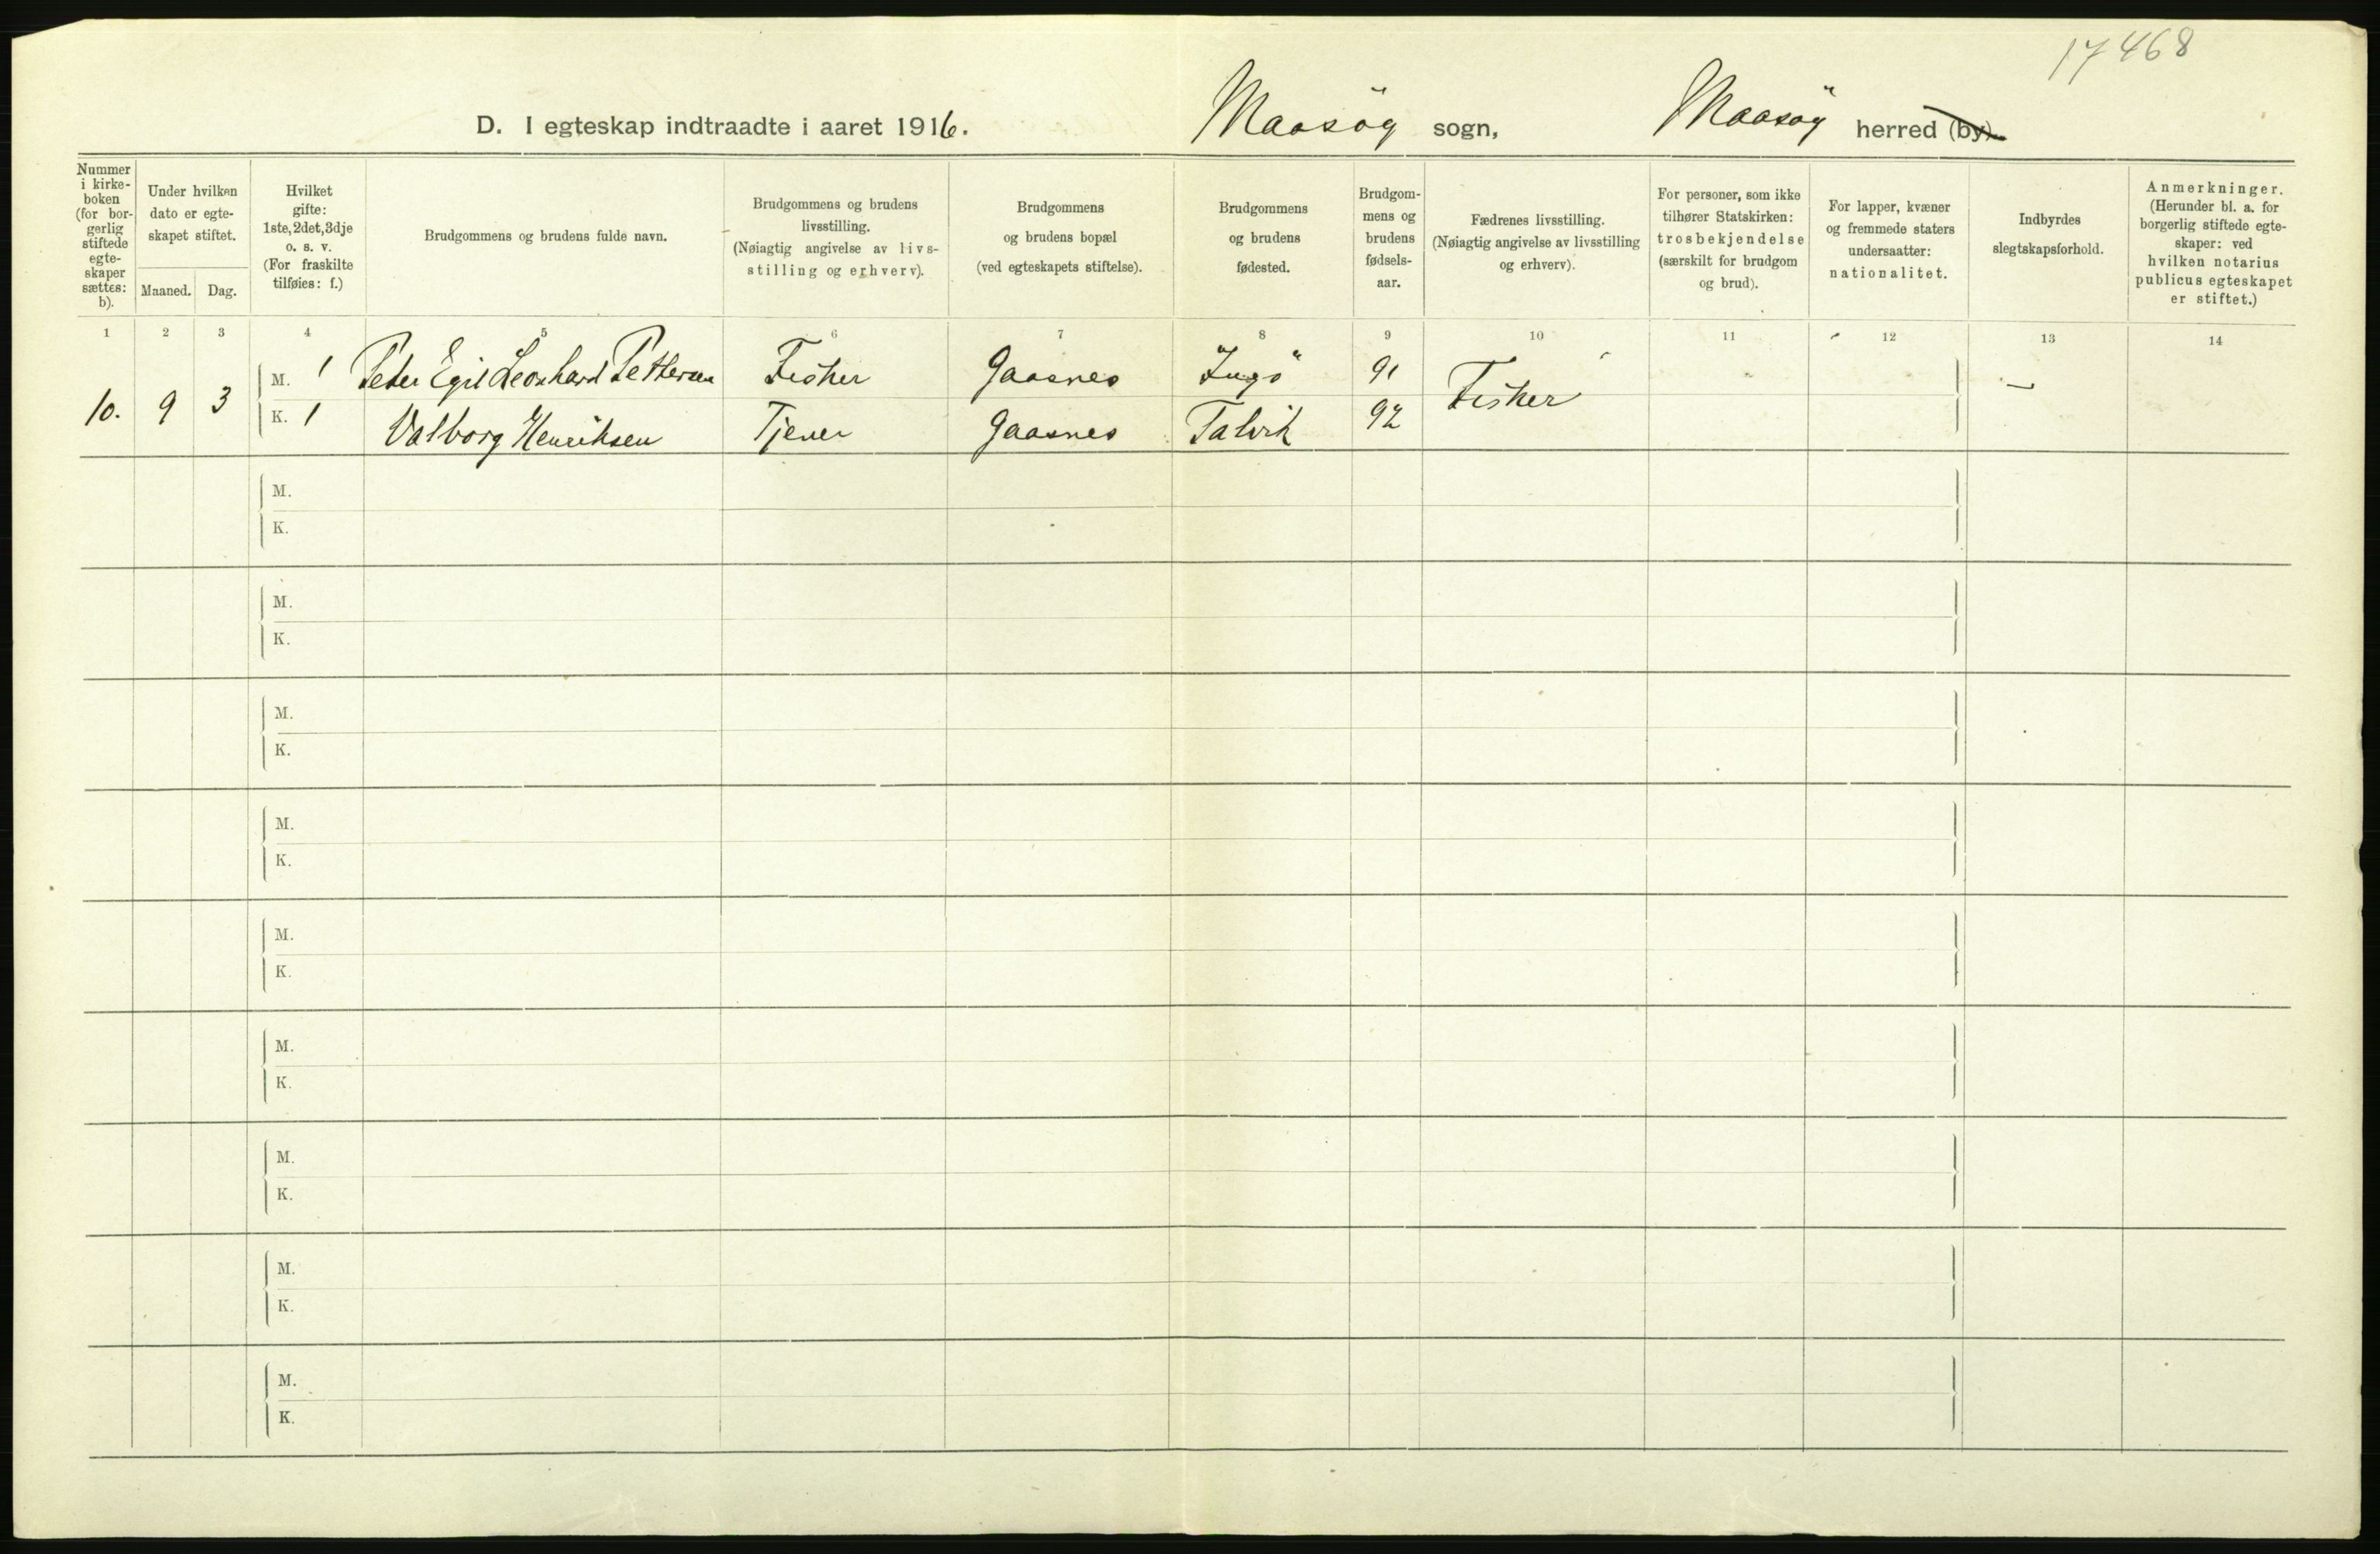 17468
D. I egteskap indtraadte i aaret 1916. Maasöy sogn, Maasöy herred (by)
Nummer i kirke- boken (for bor- gerlig stiftede egte- skaper sættes: b).
Under hvilken dato er egte- skapet stiftet.
Maaned. Dag.
Hvilket gifte: 1ste, 2det, 3dje o. s. v. (For fraskilte tilføies: f.)
Brudgommens og brudens fulde navn.
Brudgommens og brudens livsstilling. (Nøiagtig angivelse av livs- stilling og erhverv).
Brudgommens og brudens bopæl (ved egteskapets stiftelse).
Brudgommens og brudens fødested.
Brudgom- mens og brudens fødsels- aar.
Fædrenes livsstilling. (Nøiagtig angivelse av livsstilling og erhverv).
For personer, som ikke tilhører Statskirken: trosbekjendelse (særskilt for brudgom og brud).
For lapper, kvæner og fremmede staters undersaatter: nationalitet.
Indbyrdes slegtskapsforhold.
Anmerkninger. (Herunder bl. a. for borgerlig stiftede egte- skaper: ved hvilken notarius publicus egteskapet er stiftet.)
1 2 3 4 5 6 7 8 9 10 11 12 13 14
M. 1 Peter Egil Leonhard Pettersen Fisker Gaasnes Ingö 91
10. 9 3 Fisker —
K. 1 Valborg Henriksen Tjener Gaasnes Talvik 92
M.
K.
M.
K.
M.
K.
M.
K.
M.
K.
M.
K.
M.
K.
M.
K.
M.
K.